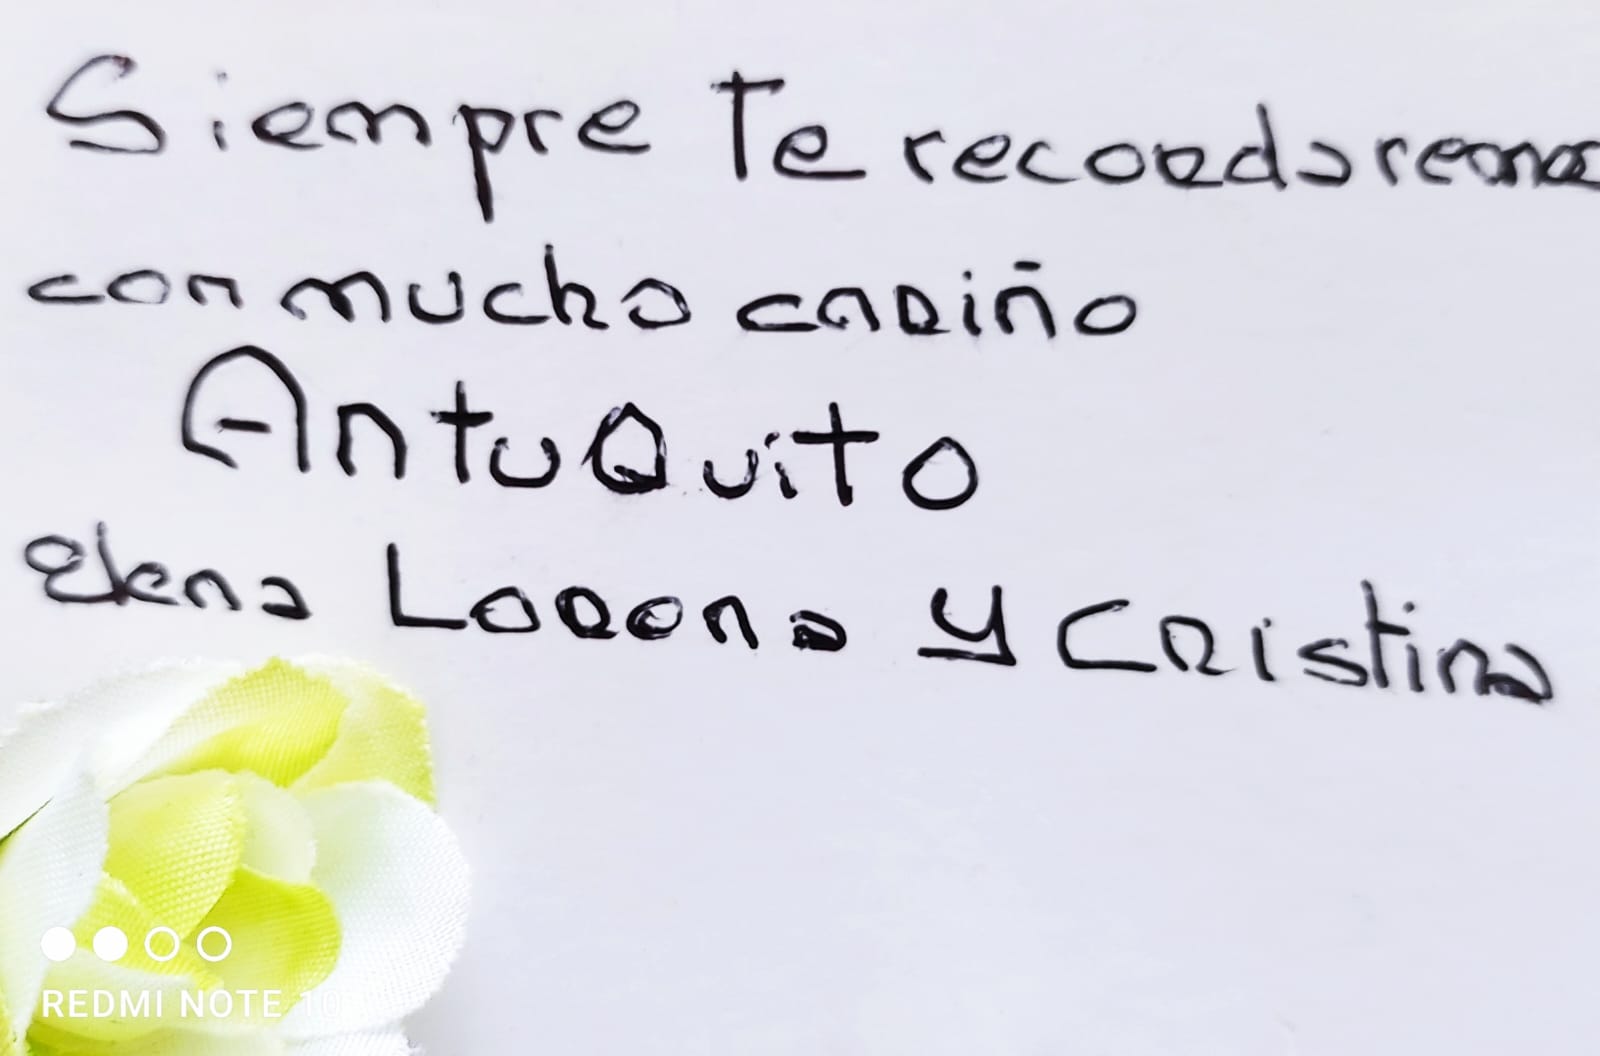 Siempre Te recordaremos
con mucho cariño
AntuQuito
Elena Lorena y Cristina
REDMI NOTE 10